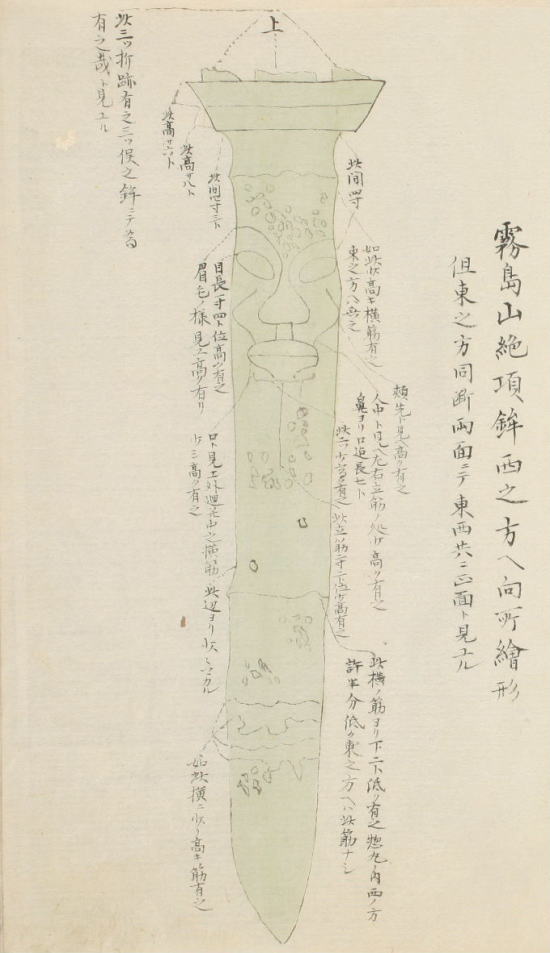 霧島山絶頂鉾西之方ヘ向所繪形
但東之方同断両面ニテ東西共ニ正面ト見エル
上
此三ッ折跡有之三ッ俣之鉾ニテ為
有之哉ト見エル
此高サ六ト
此高サ八ト
此間壱寸三ト
此間四寸
如此少高キ横筋有之
東之方ヘ無之
目長一寸四ト位高ク有之
眉毛ノ様見エ高ク有リ
頬先ト見ヘ高ク有之
人中ト見ヘ左右立筋ノ処少高ク有之
鼻ヨリ口迄長七ト
此立筋二寸二ト位少高有之
口ト見エ外廻并中之横筋
少シ高ク有之
此辺ヨリ少シ
此横ノ筋ヨリ下二ト低ク有之惣丸ノ内西ノ方
許半分低ク東之方ヘハ此筋ナシ
如此横ニ少シ高キ筋有之